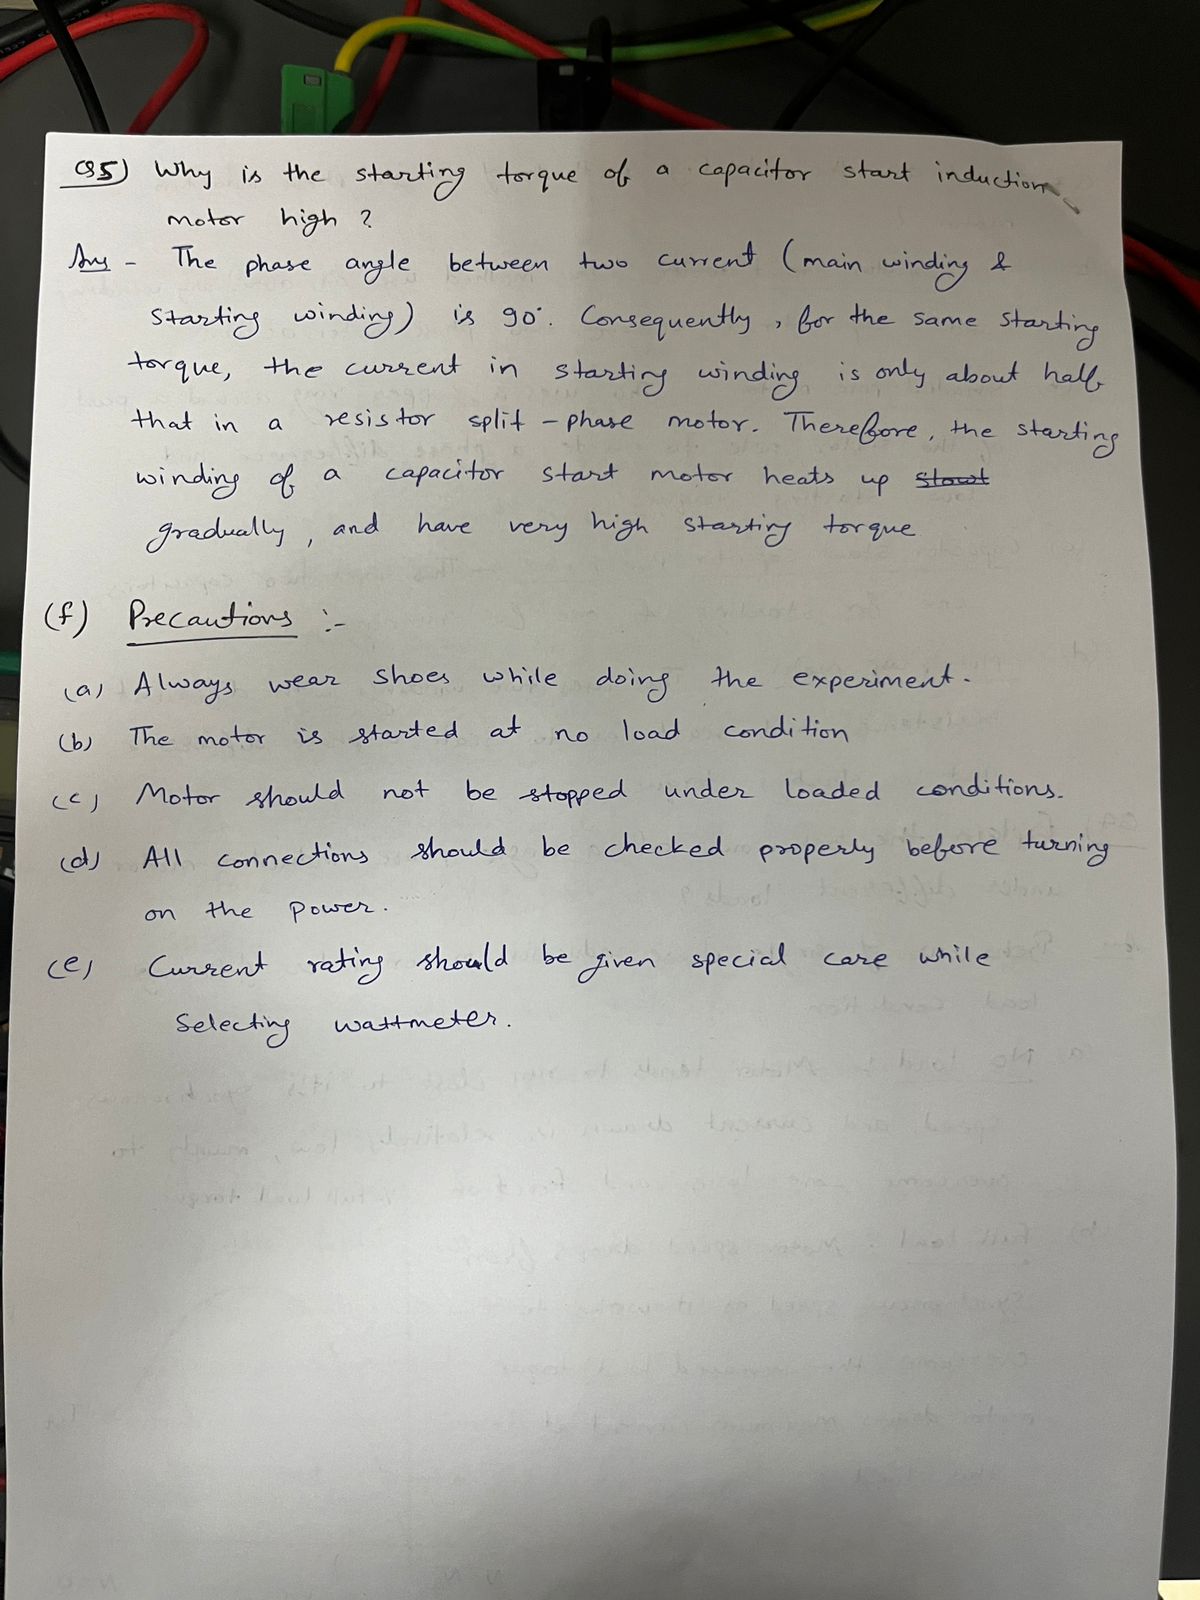 Q5) Why is the starting torque of a capacitor start induction
motor high ?
Ans - The phase angle between two current (main winding &
starting winding) is 90°. Consequently, for the same starting
torque, the current in starting winding is only about half
that in a resistor split-phase motor. Therefore, the starting
winding of a capacitor start motor heats up
gradually, and have very high starting torque
(f) Precautions :-
(a) Always wear shoes while doing the experiment.
(b) The motor is started at no load condition
(c) Motor should not be stopped under loaded conditions.
(d) All connections should be checked properly before turning
on the power.
(e) Current rating should be given special care while
Selecting wattmeter.